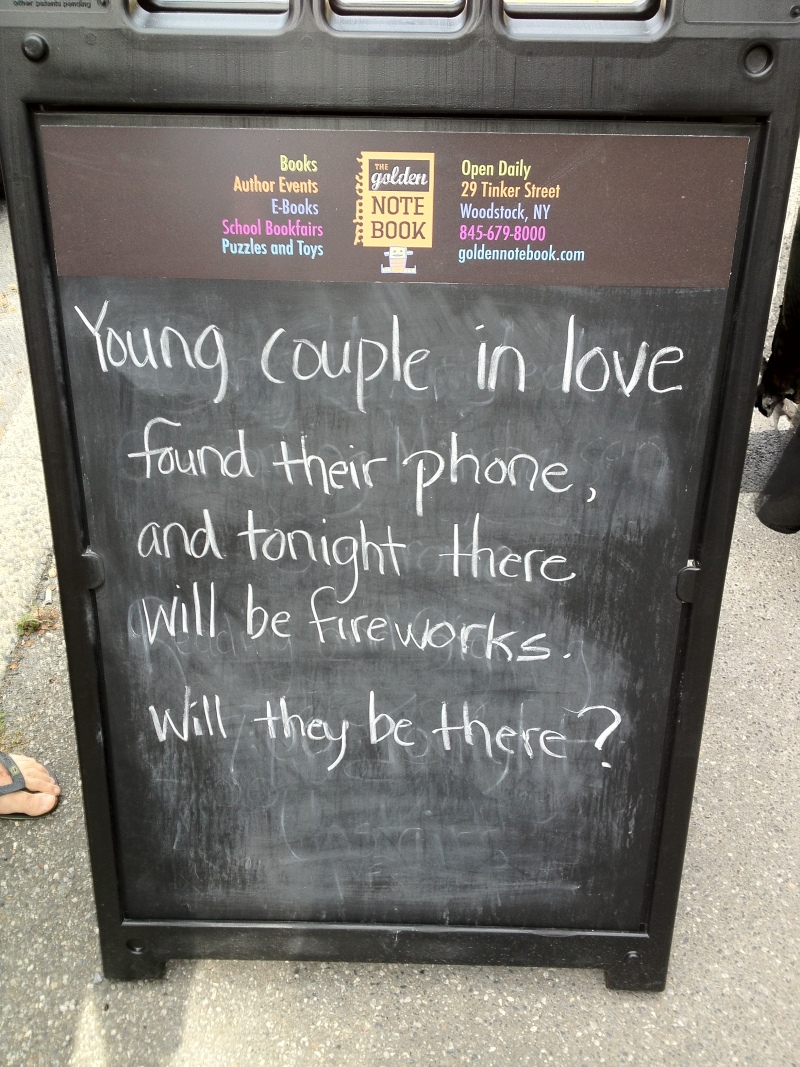 other patents pending
Books
Author Events
E-Books
School Bookfairs
Puzzles and Toys
THE
golden
NOTE
BOOK
Open Daily
29 Tinker Street
Woodstock, NY
845-679-8000
goldennotebook.com
Young couple in love
found their phone,
and tonight there
will be fireworks.
Will they be there?